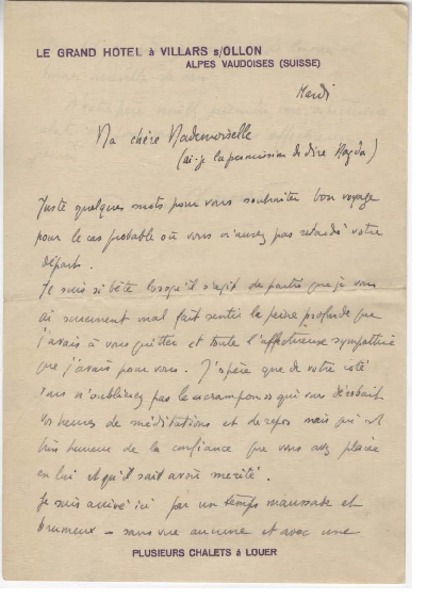 LE GRAND HOTEL à VILLARS s/OLLON
ALPES VAUDOISES (SUISSE)
Mardi
Ma chère Mademoiselle
(ai-je la permission de dire Magda)
Juste quelques mots pour vous souhaiter bon voyage
pour le cas probable où vous n'auriez pas retardé votre
départ.
Je suis si bête lorsqu'il s'agit de partir que je vous
ai surement mal fait sentir la peine profonde que
j'avais à vous quitter et toute l'affectueuse sympathie
que j'avais pour vous. J'espère que de votre côté
vous n'oublierez pas le qui vous dérobait
vos heures de méditations et de repos mais qui est
très heureux de la confiance que vous avez placée
en lui et qu'il sait avoir méritée.
Je suis arrivé ici par un temps maussade et
brumeux – sans vue aucune et avec une
PLUSIEURS CHALETS à LOUER